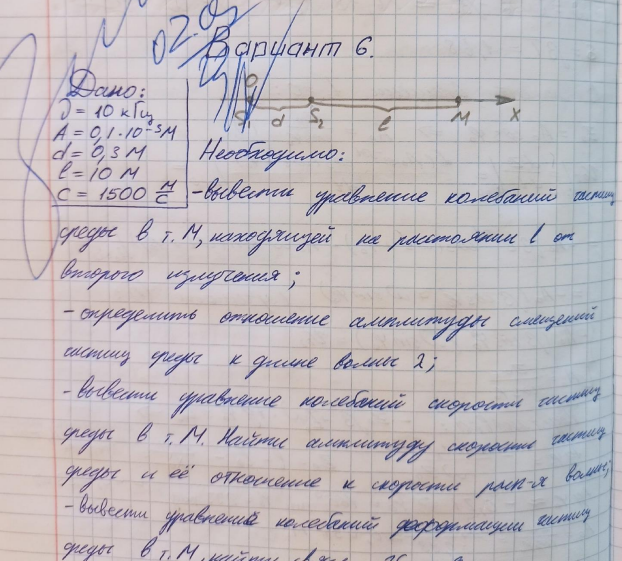 02.03
Вариант 6.
Дано:
ν = 10 кГц
A = 0,1·10⁻³ м
d = 0,3 м
l = 10 м
c = 1500 м/с
0
S₁ d S₂ l M x
Необходимо:
- вывести уравнение колебаний частиц
среды в т. М, находящейся на расстоянии l от
второго излучения;
- определить отношение амплитуды смещений
частиц среды к длине волны λ;
- вывести уравнение колебаний скорости частиц
среды в т. М. Найти амплитуду скорости частиц
среды и её отношение к скорости расп-я волны;
- вывести уравнение колебаний деформации частиц
среды в т. М, найти